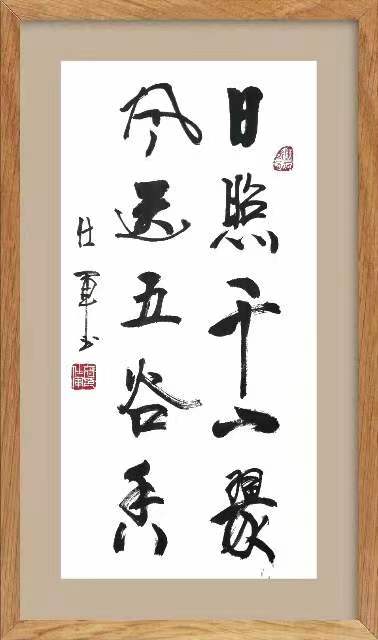 日照千山翠
风送五谷香
仕軍书